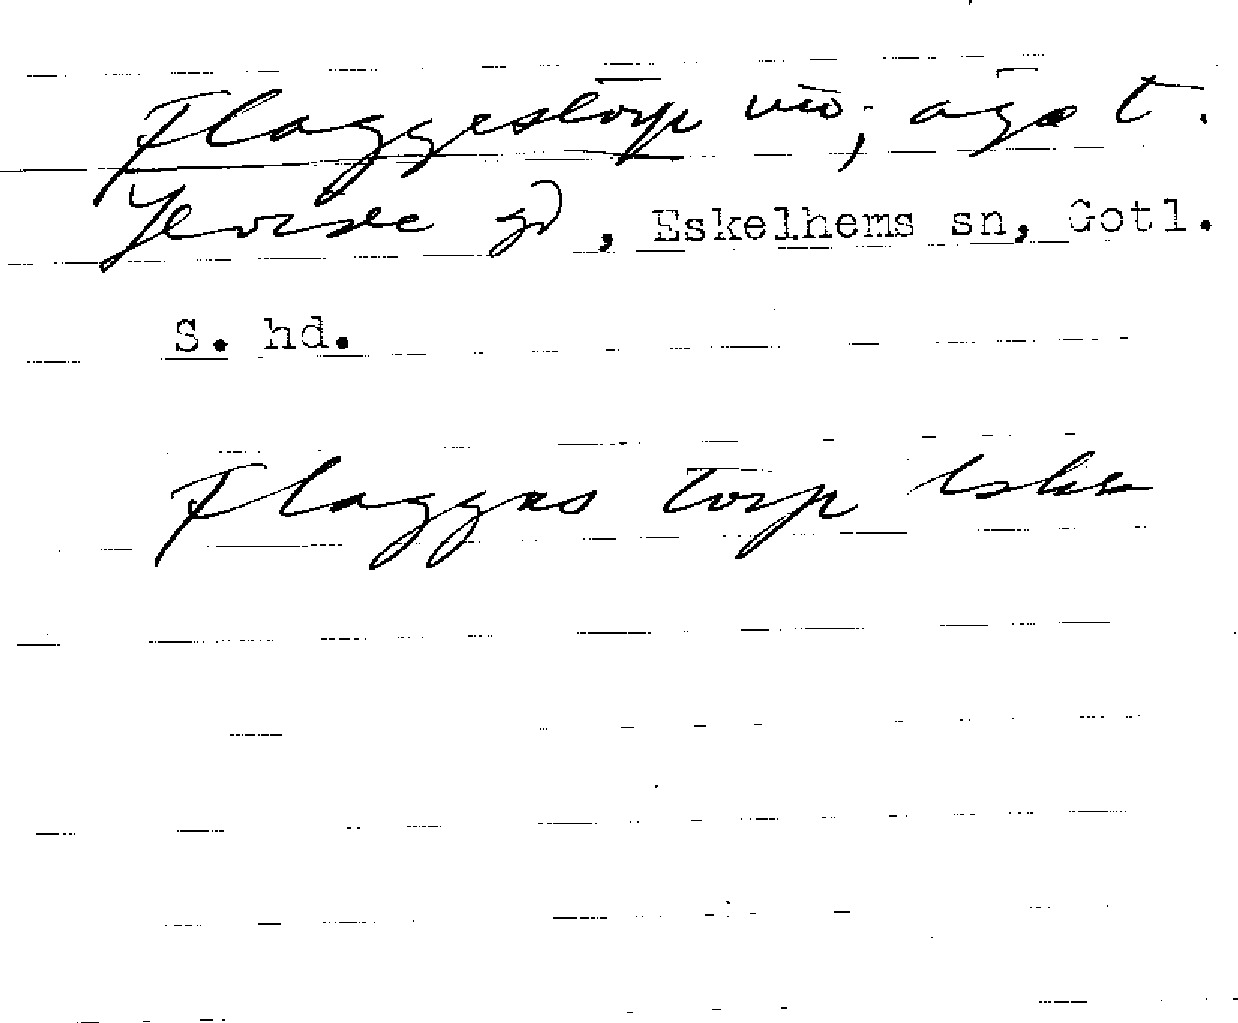 Flaggestorp ägo t.
gd, Eskelhems sn, Gotl.
S. hd.
Flagges torp